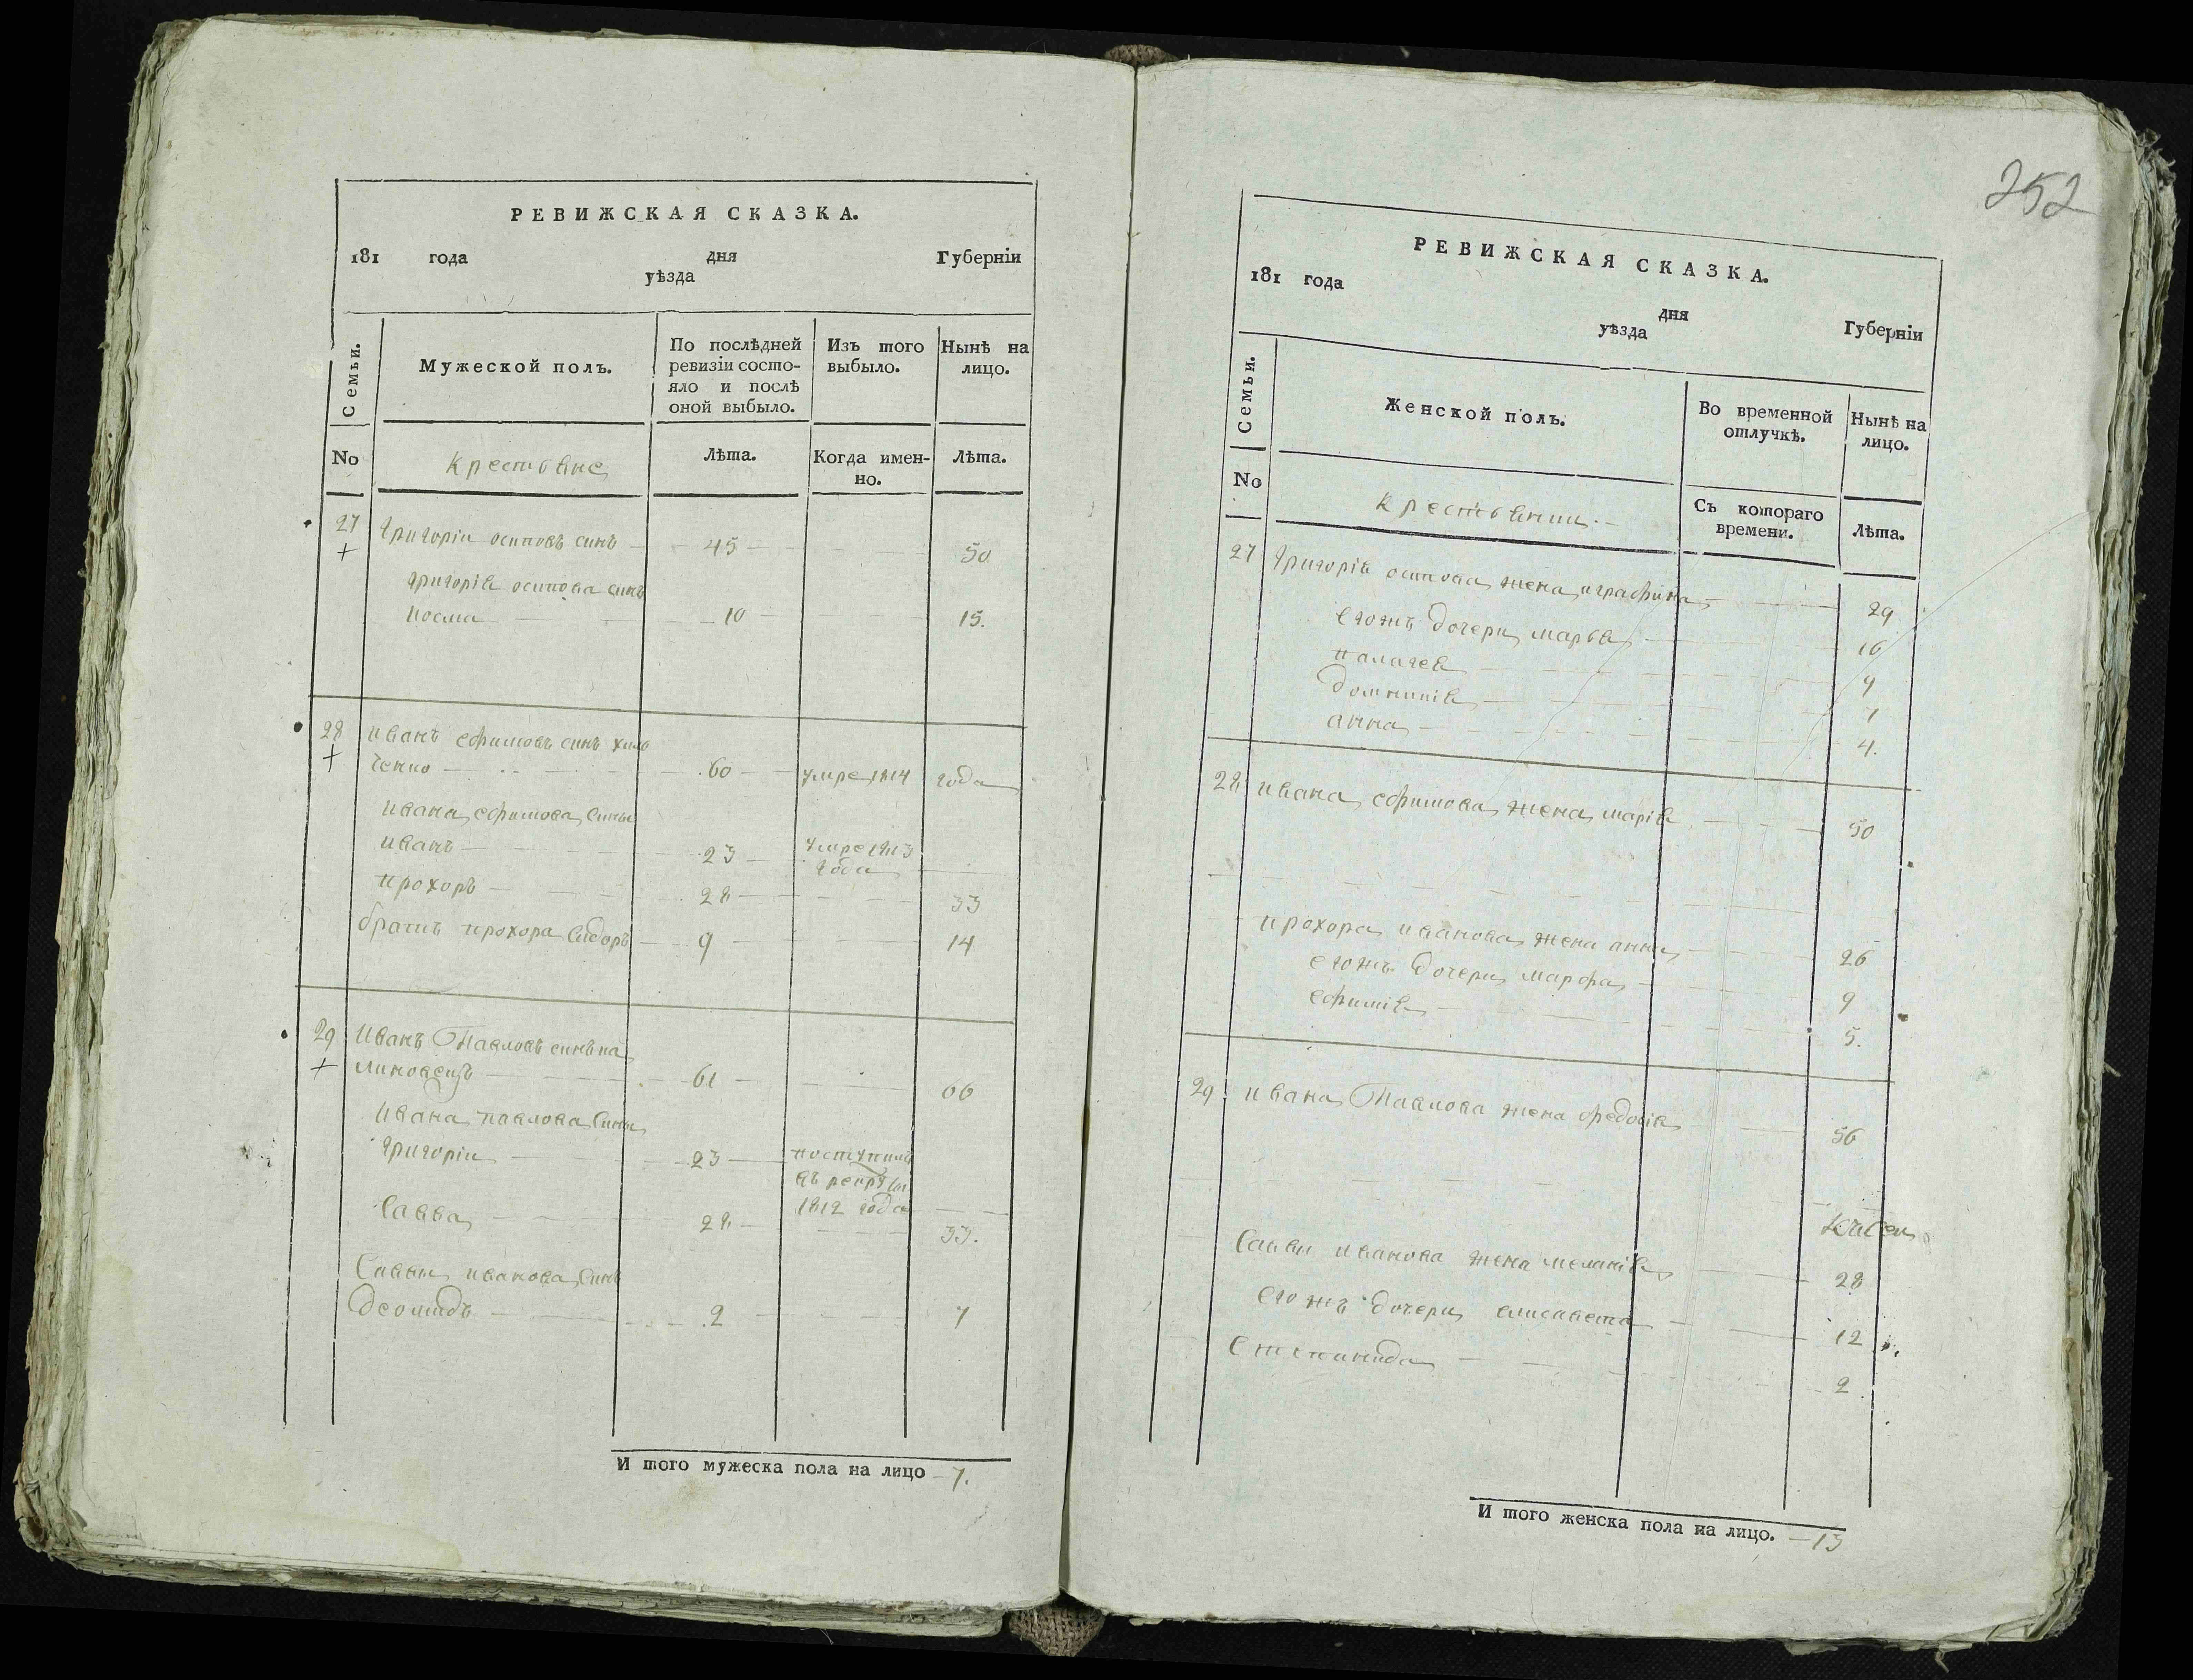 РЕВИЖСКАЯ СКАЗКА.
181 года дня Губерніи
уѣзда
Семьи.
Мужеской полъ.
По послѣдней ревизіи состо-
яло и послѣ
оной выбыло.
Изъ того
выбыло.
Нынѣ на
лицо.
No
крестьяне
Лѣта.
Когда имен-
но.
Лѣта.
27 григоріи осиповъ синъ 45 50
+
григорія осипова синъ
косма 10 15.
28 иванъ ефимовъ синъ
+
ченко 60 умре 1814 года
ивана ефимова сины
иванъ 23 умре 1813
года
прохоръ 28 33
братъ прохора сидоръ 9 14
29 Иванъ Павловъ синъ ка
+
линовецъ 61 66
Ивана павлова сины
григоріи 23 поступилъ
въ рекруты
1812 года
савва 28 33.
саввы иванова синъ
2 7
И того мужеска пола на лицо 7.
252
РЕВИЖСКАЯ СКАЗКА.
181 года дня Губерніи
уѣзда
Семьи.
Женской полъ.
Во временной
отлучкѣ.
Нынѣ на
лицо.
No
крестьянки
Съ котораго
времени.
Лѣта.
27 григорія осипова жена аграфина 29
егожъ дочери марья 16
палагея 9
домникія 7
анна 4.
28 ивана ефимова жена марія 50
прохора иванова жена анна 26
егожъ дочери марфа 9
ефимія 5.
29 ивана Павлова жена федосія 56
саввы иванова жена меланія 28
егожъ дочери елисавета 12
степанида 2.
И того женска пола на лицо. 13